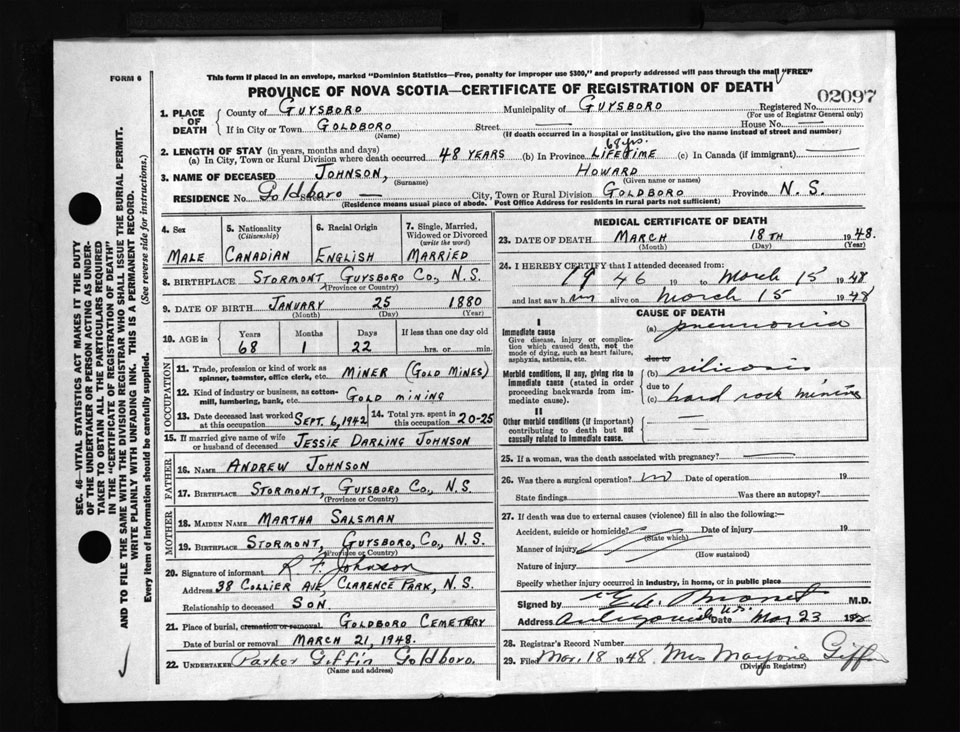 FORM 6
This form if placed in an envelope, marked "Dominion Statistics—Free, penalty for improper use $300," and properly addressed will pass through the mail "FREE"
PROVINCE OF NOVA SCOTIA—CERTIFICATE OF REGISTRATION OF DEATH
02097
1. PLACE OF DEATH
County of GUYSBORO Municipality of GUYSBORO Registered No.
(For use of Registrar General only)
If in City or Town GOLDBORO Street — House No. —
(Name) (If death occurred in a hospital or institution, give the name instead of street and number)
2. LENGTH OF STAY (in years, months and days)
68 yrs.
(a) In City, Town or Rural Division where death occurred 48 YEARS (b) In Province LIFETIME (c) In Canada (if immigrant) —
3. NAME OF DECEASED JOHNSON, HOWARD
(Surname) (Given name or names)
RESIDENCE No. Goldboro City, Town or Rural Division GOLDBORO Province N. S.
(Residence means usual place of abode. Post Office Address for residents in rural parts not sufficient)
4. Sex
MALE
5. Nationality
(Citizenship)
CANADIAN
6. Racial Origin
ENGLISH
7. Single, Married, Widowed or Divorced
(write the word)
MARRIED
8. BIRTHPLACE STORMONT GUYSBORO CO., N.S.
(Province or Country)
9. DATE OF BIRTH JANUARY 25 1880
(Month) (Day) (Year)
10. AGE in
Years Months Days If less than one day old
68 1 22 hrs. or min.
OCCUPATION
11. Trade, profession or kind of work as spinner, teamster, office clerk, etc. MINER (GOLD MINES)
12. Kind of industry or business, as cotton-mill, lumbering, bank, etc. GOLD MINING
13. Date deceased last worked at this occupation SEPT. 6, 1942
14. Total yrs. spent in this occupation 20-25
15. If married give name of wife or husband of deceased JESSIE DARLING JOHNSON
FATHER
16. NAME ANDREW JOHNSON
17. BIRTHPLACE STORMONT, GUYSBORO CO., N.S.
(Province or Country)
MOTHER
18. MAIDEN NAME MARTHA SALSMAN
19. BIRTHPLACE STORMONT, GUYSBORO, CO., N.S.
(Province or Country)
20. Signature of informant R F Johnson
Address 38 COLLIER AVE, CLARENCE PARK, N.S.
Relationship to deceased SON.
21. Place of burial, cremation or removal GOLDBORO CEMETERY
Date of burial or removal MARCH 21, 1948.
22. UNDERTAKER Parker Giffin Goldboro.
(Name and address)
MEDICAL CERTIFICATE OF DEATH
23. DATE OF DEATH MARCH 18TH 1948.
(Month) (Day) (Year)
24. I HEREBY CERTIFY that I attended deceased from:
1946 19 to March 15 1948
and last saw him alive on March 15 1948
CAUSE OF DEATH
I
Immediate cause
Give disease, injury or complication which caused death, not the mode of dying, such as heart failure, asphyxia, asthenia, etc.
(a) pneumonia
due to
Morbid conditions, if any, giving rise to immediate cause (stated in order proceeding backwards from immediate cause).
(b) silicosis
due to
(c) hard rock mining
II
Other morbid conditions (if important) contributing to death but not causally related to immediate cause.
25. If a woman, was the death associated with pregnancy? —
26. Was there a surgical operation? no Date of operation 19
State findings Was there an autopsy?
27. If death was due to external causes (violence) fill in also the following:—
Accident, suicide or homicide? Date of injury 19
(State which)
Manner of injury
(How sustained)
Nature of injury
Specify whether injury occurred in industry, in home, or in public place
Signed by M.D.
Address Antigonish N.S. Date Mar 23 1948
28. Registrar's Record Number
29. Filed Mar. 18 1948. Mrs Marjorie Giffin
(Division Registrar)
SEC. 46—VITAL STATISTICS ACT MAKES IT THE DUTY
OF THE UNDERTAKER OR PERSON ACTING AS UNDER-
TAKER TO OBTAIN ALL THE PARTICULARS REQUIRED
IN THE "CERTIFICATE OF REGISTRATION OF DEATH"
AND TO FILE THE SAME WITH THE DIVISION REGISTRAR WHO SHALL ISSUE THE BURIAL PERMIT.
WRITE PLAINLY WITH UNFADING INK. THIS IS A PERMANENT RECORD.
Every item of information should be carefully supplied. (See reverse side for instructions.)